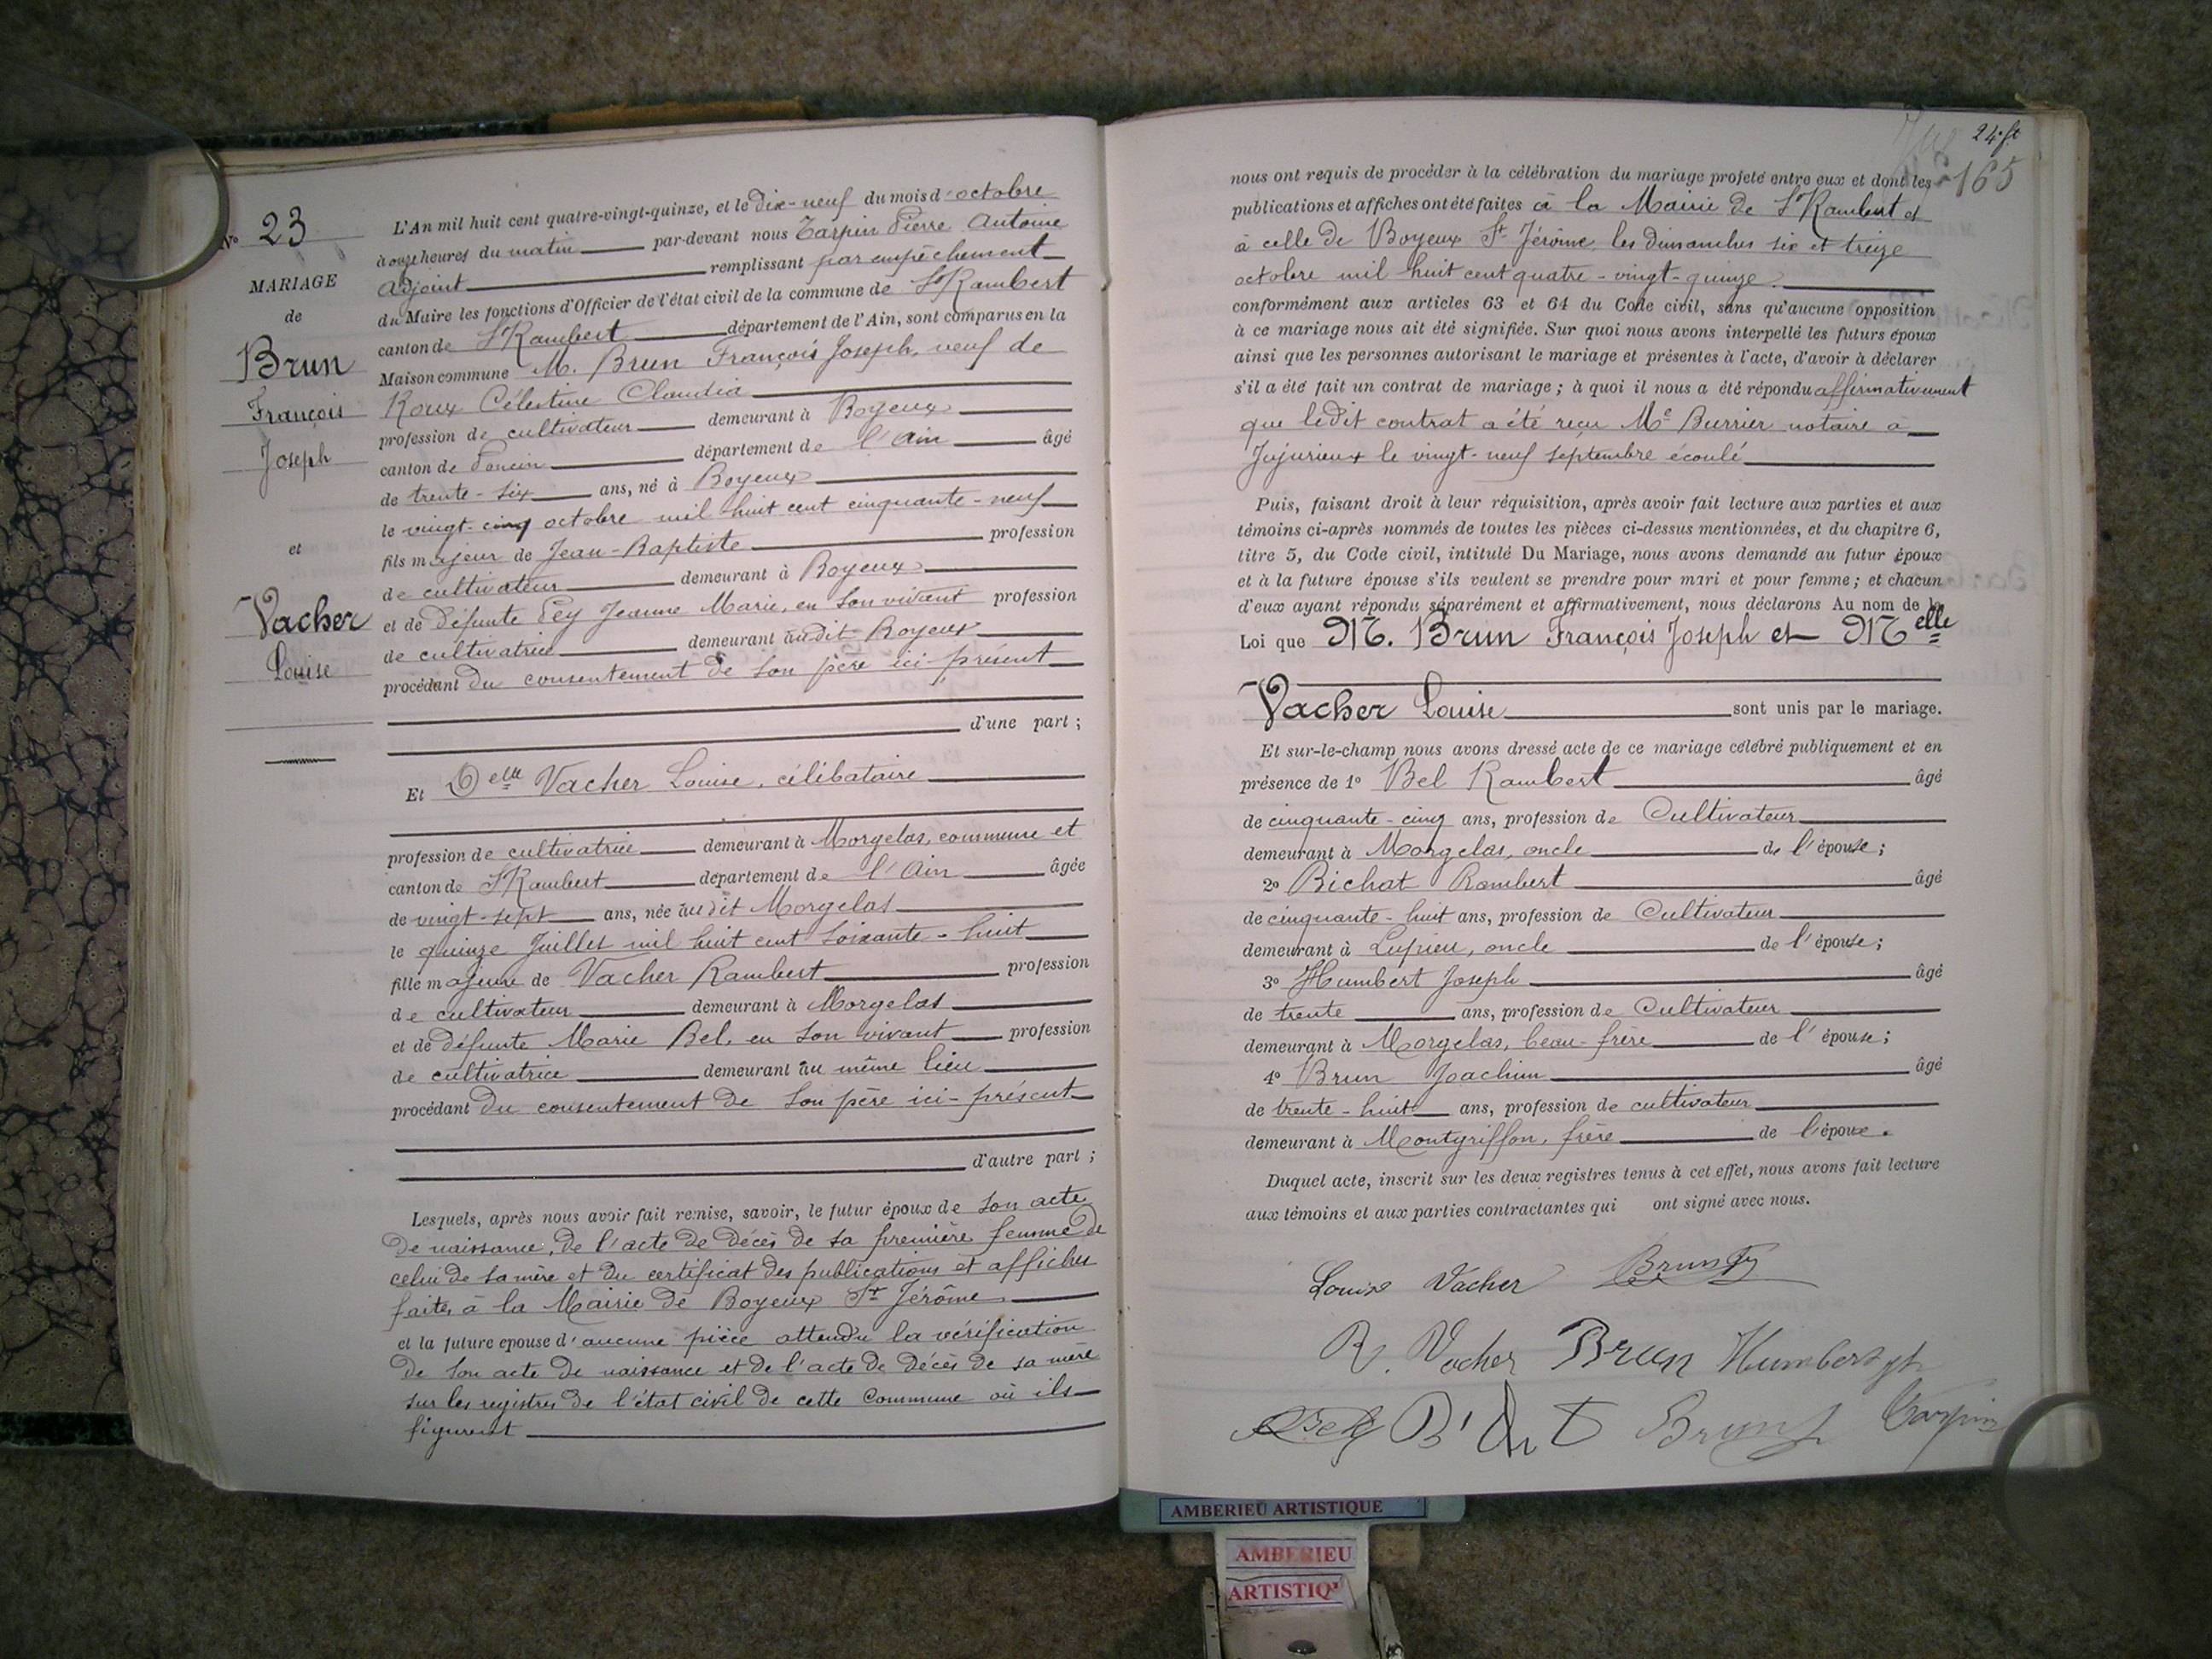 N° 23
MARIAGE
de
Brun
François
Joseph
et
Vacher
Louise
L'An mil huit cent quatre-vingt-quinze, et le dix-neuf du mois d'octobre
à onze heures du matin par-devant nous Tarpin Pierre Antoine
adjoint remplissant par empêchement
du Maire les fonctions d'Officier de l'état civil de la commune de St Rambert
canton de St Rambert département de l'Ain, sont comparus en la
Maison commune M. Brun François Joseph, veuf de
Roux Célestine Claudia
profession de cultivateur demeurant à Boyeux
canton de Poncin département de l'Ain âgé
de trente-six ans, né à Boyeux
le vingt-cinq octobre mil huit cent cinquante-neuf
fils majeur de Jean-Baptiste profession
de cultivateur demeurant à Boyeux
et de défunte Pey Jeanne Marie, en son vivant profession
de cultivatrice demeurant audit Boyeux
procédant du consentement de son père ici-présent
d'une part ;
Et Delle Vacher Louise, célibataire
profession de cultivatrice demeurant à Morgelas, commune et
canton de St Rambert département de l'Ain âgée
de vingt-sept ans, née audit Morgelas
le quinze Juillet mil huit cent soixante-huit
fille majeure de Vacher Rambert profession
de cultivateur demeurant à Morgelas
et de défunte Marie Bel, en son vivant profession
de cultivatrice demeurant au même lieu
procédant du consentement de son père ici-présent
d'autre part ;
Lesquels, après nous avoir fait remise, savoir, le futur époux de son acte
de naissance, de l'acte de décès de sa première femme de
celui de sa mère et du certificat des publications et affiches
faites à la Mairie de Boyeux St Jérôme
et la future épouse d'aucune pièce attendu la vérification
de son acte de naissance et de l'acte de décès de sa mère
sur les registres de l'état civil de cette Commune où ils
figurent
24e ft
165
nous ont requis de procéder à la célébration du mariage projeté entre eux et dont les
publications et affiches ont été faites à la Mairie de St Rambert et
à celle de Boyeux St Jérôme les dimanches six et treize
octobre mil huit cent quatre-vingt-quinze.
conformément aux articles 63 et 64 du Code civil, sans qu'aucune opposition
à ce mariage nous ait été signifiée. Sur quoi nous avons interpellé les futurs époux
ainsi que les personnes autorisant le mariage et présentes à l'acte, d'avoir à déclarer
s'il a été fait un contrat de mariage ; à quoi il nous a été répondu affirmativement
que ledit contrat a été reçu Me Burrier notaire à
Jujurieux le vingt-neuf septembre écoulé
Puis, faisant droit à leur réquisition, après avoir fait lecture aux parties et aux
témoins ci-après nommés de toutes les pièces ci-dessus mentionnées, et du chapitre 6,
titre 5, du Code civil, intitulé Du Mariage, nous avons demandé au futur époux
et à la future épouse s'ils veulent se prendre pour mari et pour femme ; et chacun
d'eux ayant répondu séparément et affirmativement, nous déclarons Au nom de la
Loi que M. Brun François Joseph et Melle
Vacher Louise sont unis par le mariage.
Et sur-le-champ nous avons dressé acte de ce mariage célébré publiquement et en
présence de 1° Bel Rambert âgé
de cinquante-cinq ans, profession de Cultivateur
demeurant à Morgelas, oncle de l'épouse ;
2° Bichat Rambert âgé
de cinquante-huit ans, profession de Cultivateur
demeurant à Lupieu, oncle de l'épouse ;
3° Humbert Joseph âgé
de trente ans, profession de Cultivateur
demeurant à Morgelas, beau-frère de l'épouse ;
4° Brun Joachim âgé
de trente-huit ans, profession de cultivateur
demeurant à Montgriffon, frère de l'époux.
Duquel acte, inscrit sur les deux registres tenus à cet effet, nous avons fait lecture
aux témoins et aux parties contractantes qui ont signé avec nous.
Louise Vacher Brun
R. Vacher Brun Humbert
Brun Tarpin
AMBERIEU ARTISTIQUE
AMBERIEU
ARTISTIQ'